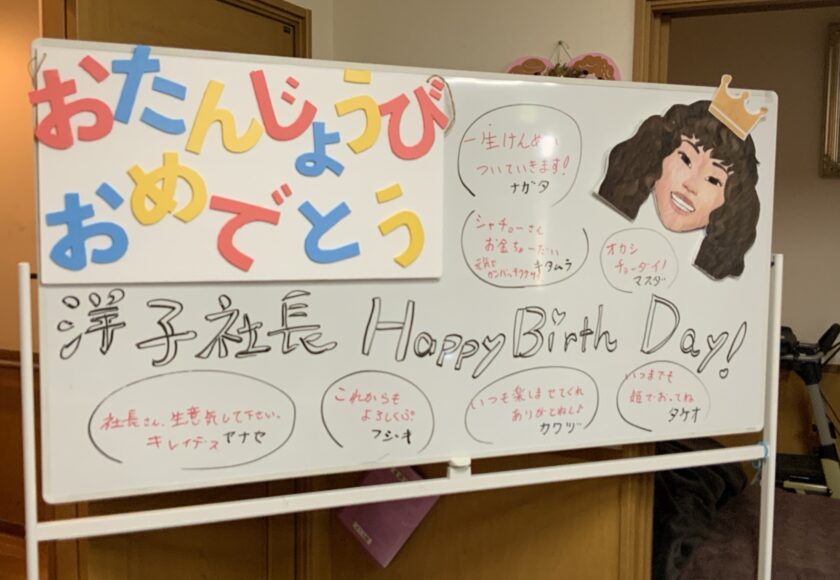 おたんじょうび
おめでとう
一生けんめい
ついていきます!
ナガタ
シャチョーさん
お金ちょーだい
キタムラ
オカシ
チョーダイ!
マスダ
洋子社長 Happy Birth Day!
社長さん、生意気して下さい。
キレイデス ヤナセ
これからも
よろしくぷ
フジオ
いつも楽しませてくれ
ありがとねん♪
カワヅ
いつまでも
姫でおってね
タケオ